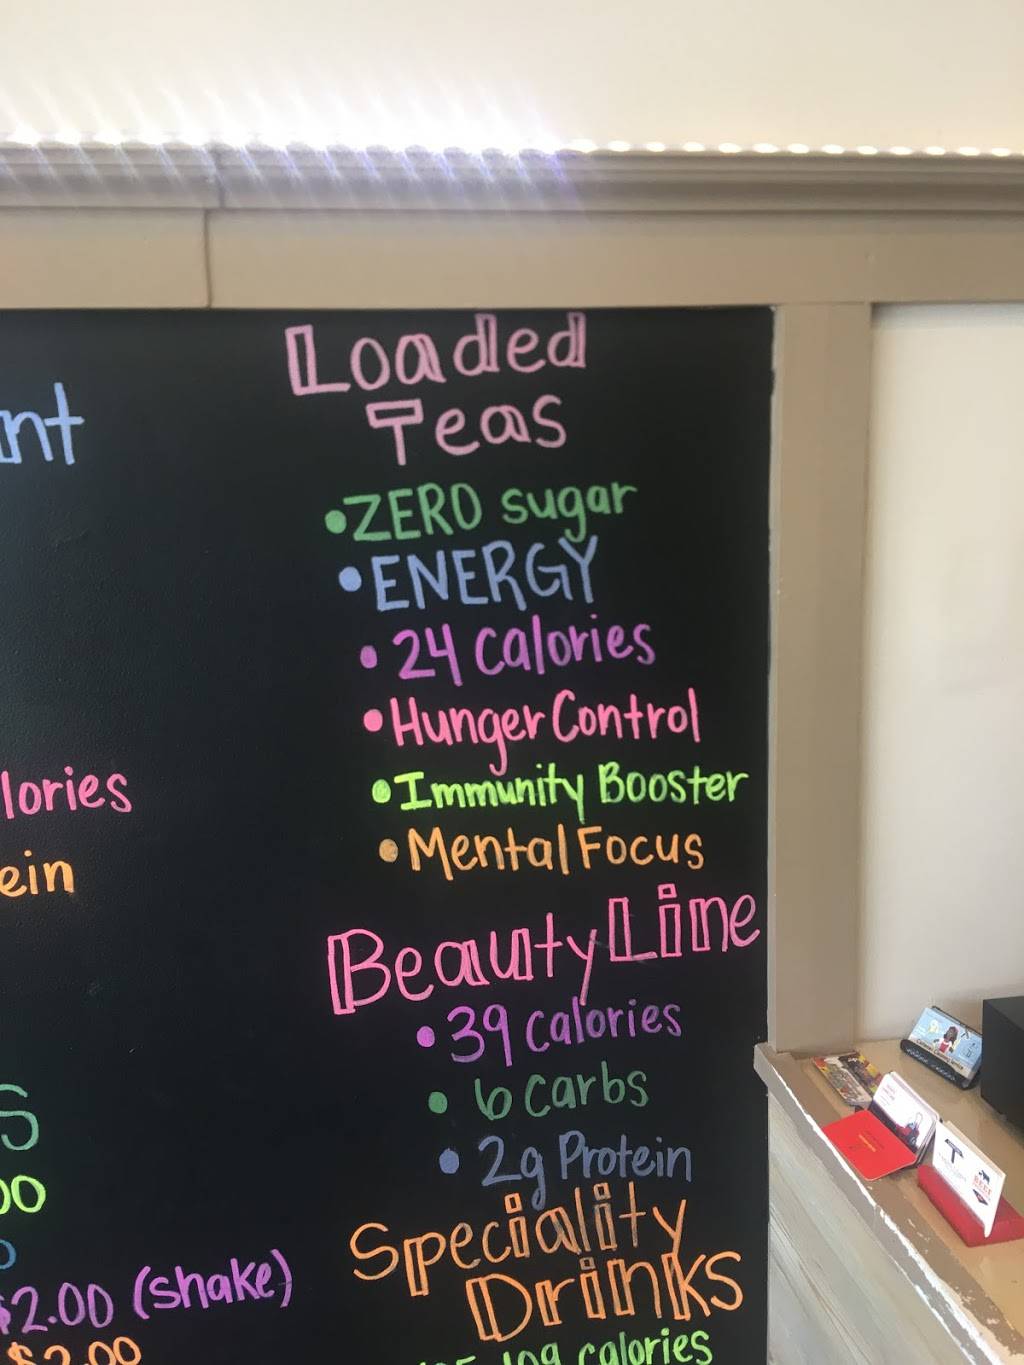 Loaded
Teas
•ZERO sugar
•ENERGY
• 24 calories
•Hunger Control
•Immunity Booster
•Mental Focus
Beauty Line
• 39 calories
• 6 carbs
• 2g Protein
Speciality
Drinks
109 calories
nt
lories
ein
S
00
$2.00 (shake)
$2.00